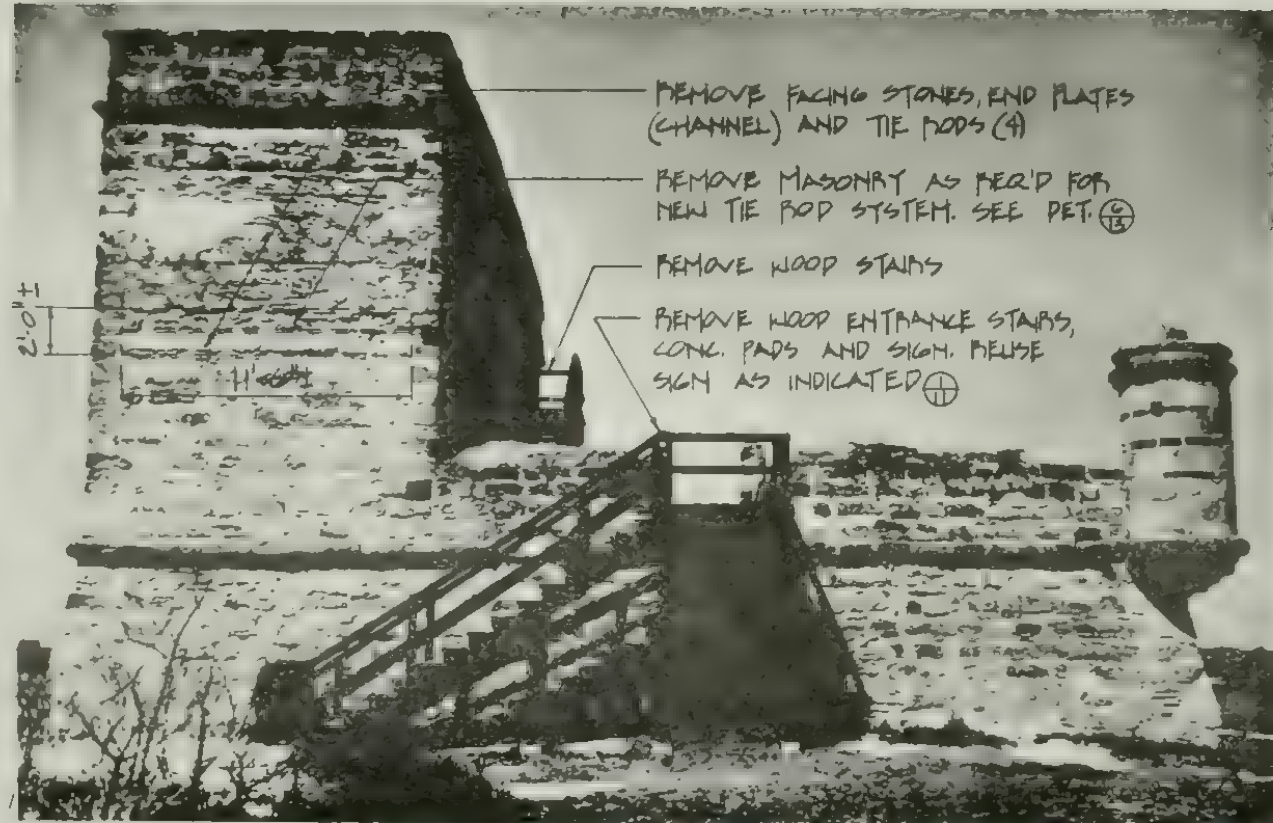 REMOVE FACING STONES, END PLATES
(CHANNEL) AND TIE RODS (4)
REMOVE MASONRY AS REQ'D FOR
NEW TIE ROD SYSTEM. SEE DET. 6/13
REMOVE WOOD STAIRS
REMOVE WOOD ENTRANCE STAIRS,
CONC. PADS AND SIGN. REUSE
SIGN AS INDICATED 11
2'-0" ±